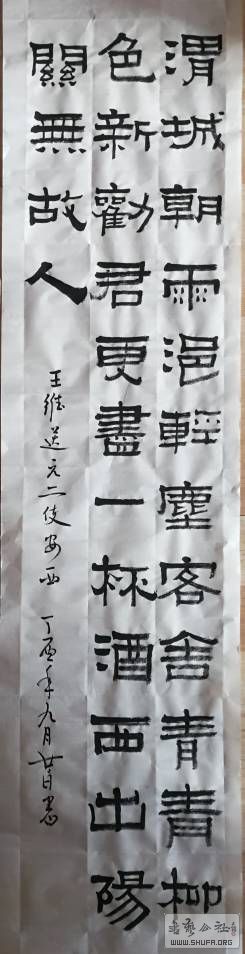 渭城朝雨浥輕塵客舍青青柳
色新勸君更盡一杯酒西出陽
關無故人
王維送元二使安西 丁酉年九月廿日
WWW.SHUFA.ORG